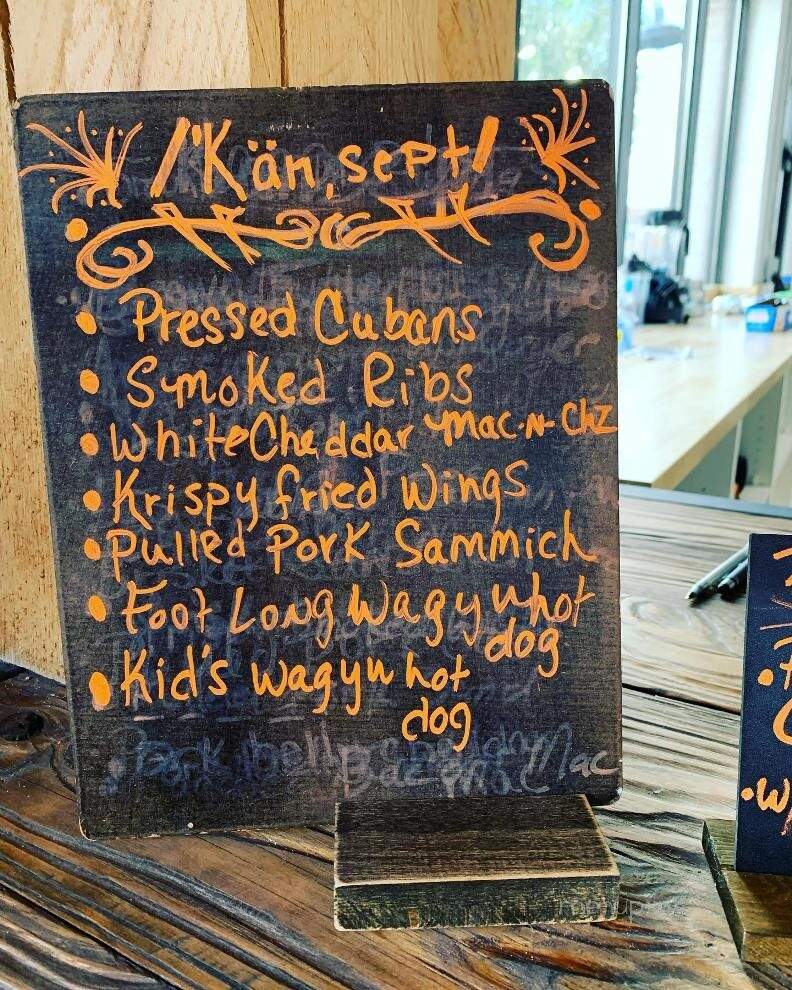 /'Kän,sept/
• Pressed Cubans
• Smoked Ribs
• White Cheddar Mac-N-ChZ
• Krispy fried Wings
• Pulled Pork Sammich
• Foot Long Wagyu hot
dog
• Kid's wagyu hot
dog